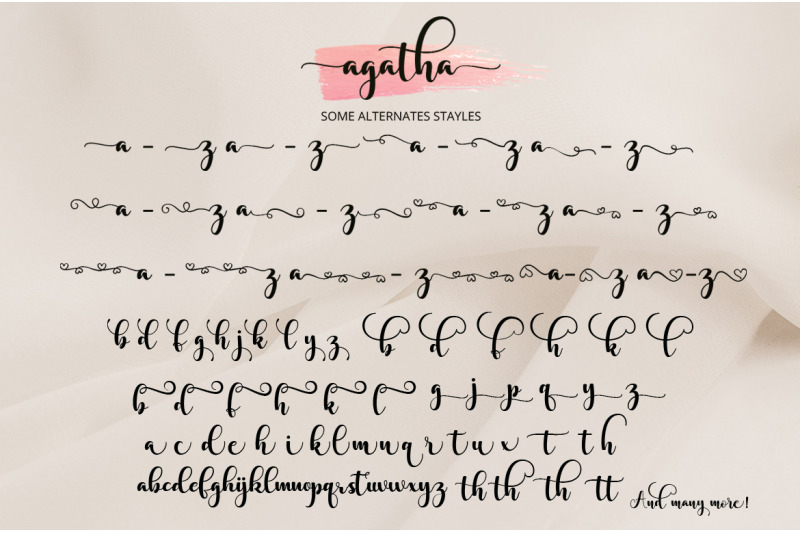 agatha
SOME ALTERNATES STAYLES
a - z a - z a - z a - z
a - z a - z a - z a - z
a - z a - z a - z a - z
b d f g h j k l y z b d f h k l
b d f h k l g j p q y z
a c d e h i k l m n q r t u x t t h
abcdefghijklmnopqrstuvwxyz th th th tt
And many more!